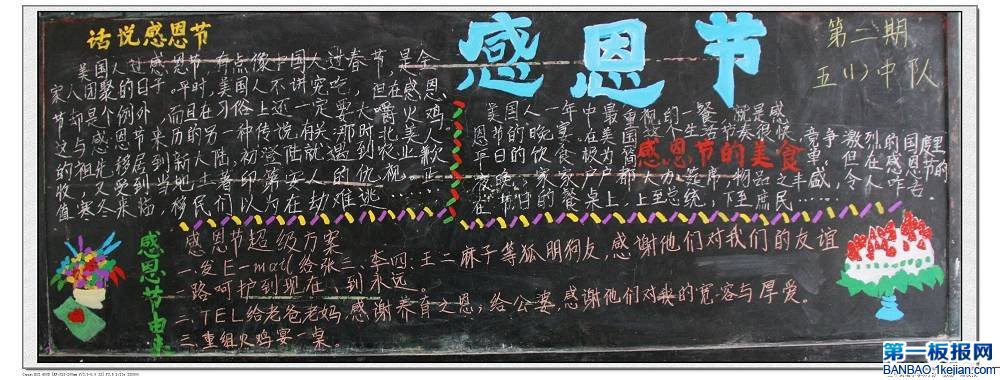 话说感恩节
美国人过感恩节,有点像中国人过春节,是合
家人团聚的日子。平时,美国人不讲究吃,但在感恩
节却是个例外,而且在习俗上还一定要大嚼火鸡。
这与感恩节来历的另一种传说有关。那时北美人
的祖先移居到新大陆,初登陆就遇到农业歉
收,又受到当地土著印第安人的仇视……正
值寒冬来临,移民们以为在劫难逃……
感恩节
第二期
五(1)中队
美国人一年中最重视的一餐,就是感
恩节的晚宴。在美国这个生活节奏很快,竞争激烈的国度里
平日的饮食极为简单。但在感恩节的
夜晚,家家户户都大办筵席,物品之丰盛,令人咋舌
在节日的餐桌上,上至总统,下至庶民……
感恩节的美食
感恩节由来
感恩节超级方案
一、发E-mail给张三、李四、王二麻子等狐朋狗友,感谢他们对我们的友谊
一路呵护到现在、到永远。
二、TEL给老爸老妈,感谢养育之恩;给公婆,感谢他们对我的宽容与厚爱。
三、重组火鸡宴一桌。
第一板报网
BANBAO.1kejian.com